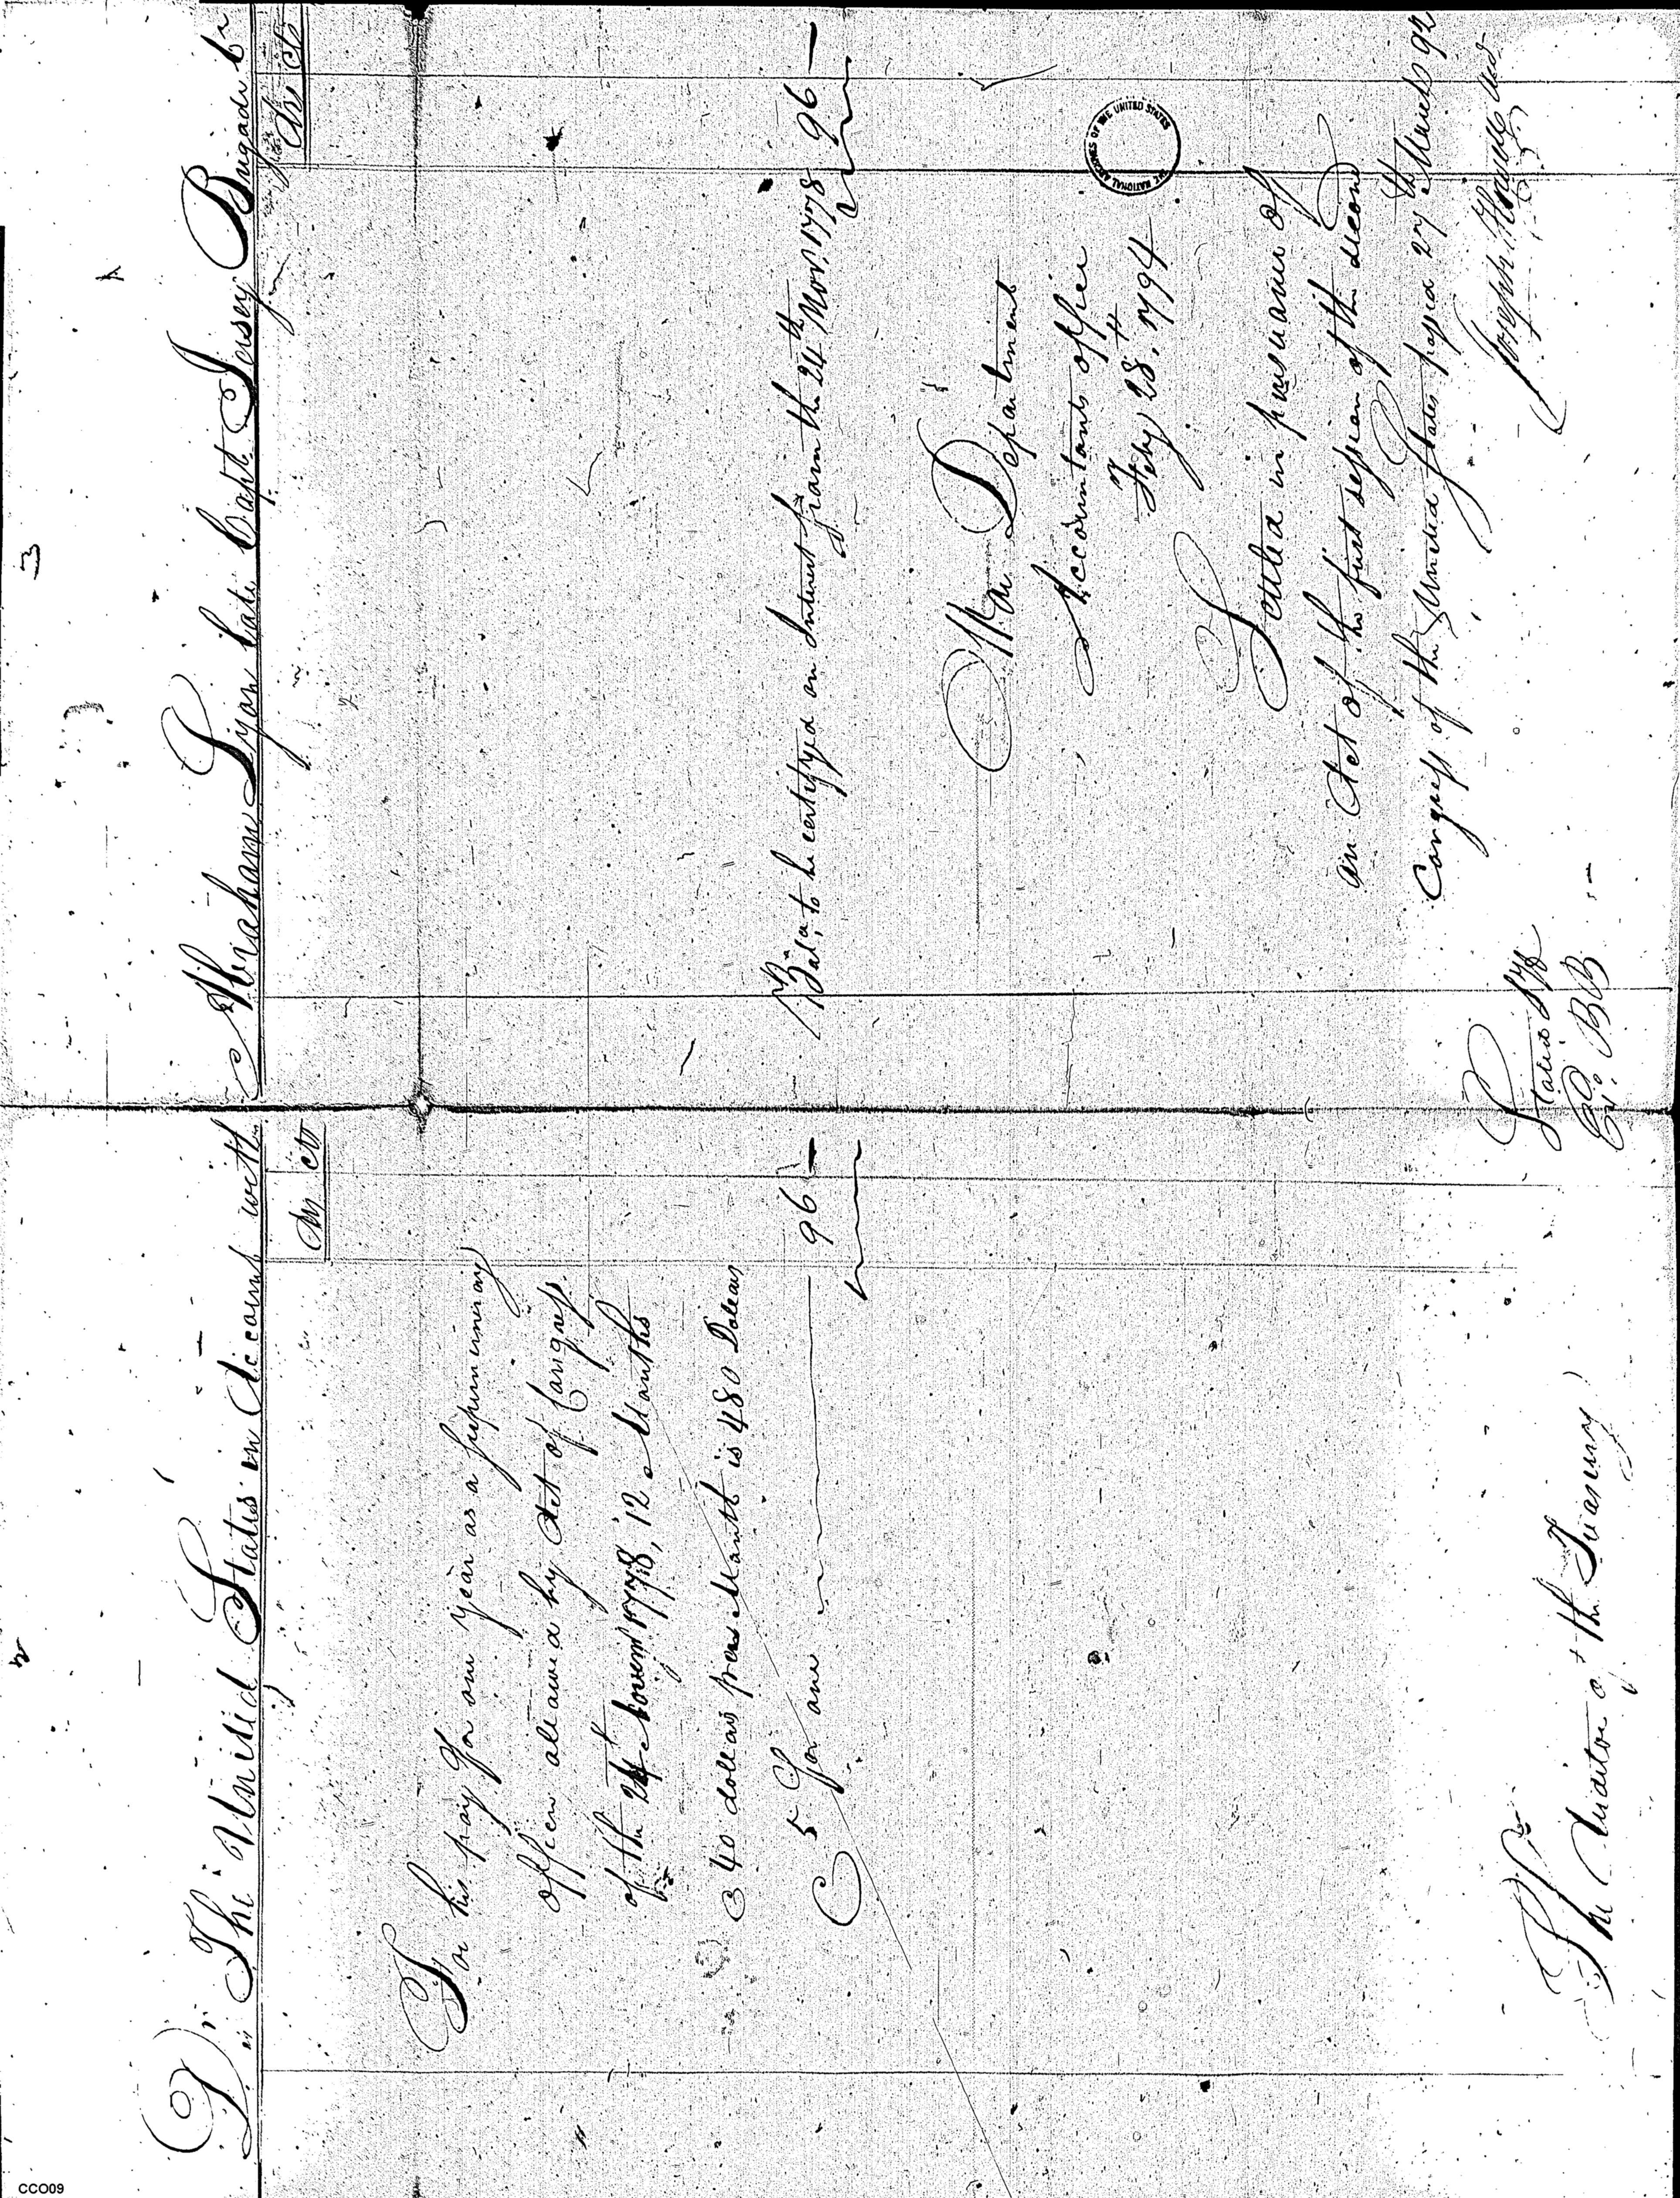 2
3
Dr. The United States in Account with
Abraham Lyon late Capt Jersey Brigade Cr
For his pay for one year as a supernumerary
officer allowed by Act of Congress
of the 24th Novem 1778, 12 Months
@ 40 dollars per Month is 480 Dolears
@ 5 for one 96 —
Bala. to be certifyed on Interest from the 24th Nov. 1778 96 —
War Department
Accountants office
Feby 28th 1794
Settled in pursuance of
an Act of the first session of the second
Congress of the United States passed 27th March 92
Joseph Howell
Stated
Ex. BB
The Auditor of the Treasury
THE NATIONAL ARCHIVES OF THE UNITED STATES
CCO09